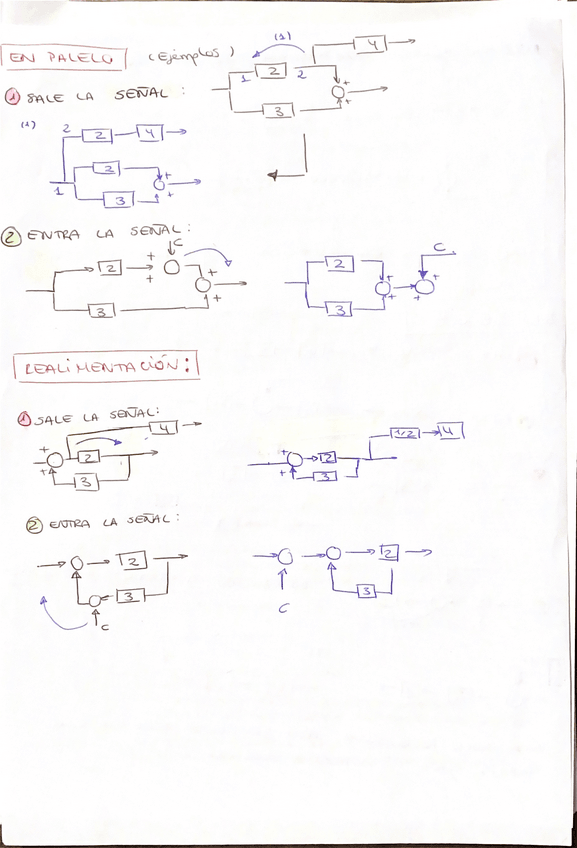 EN PALELO (Ejemplos)
(1)
4
1 2 2
+
+
3
1 SALE LA SEÑAL:
(1)
2 2 4
2
+
1 3 +
2 ENTRA LA SEÑAL:
C
2 + +
+
3 +
2
C
+ +
3 + +
REALIMENTACIÓN:
1 SALE LA SEÑAL:
4
+
2
+ 3
1/2 4
+ 2
+ 3
2 ENTRA LA SEÑAL:
2
3
C
2
3
C